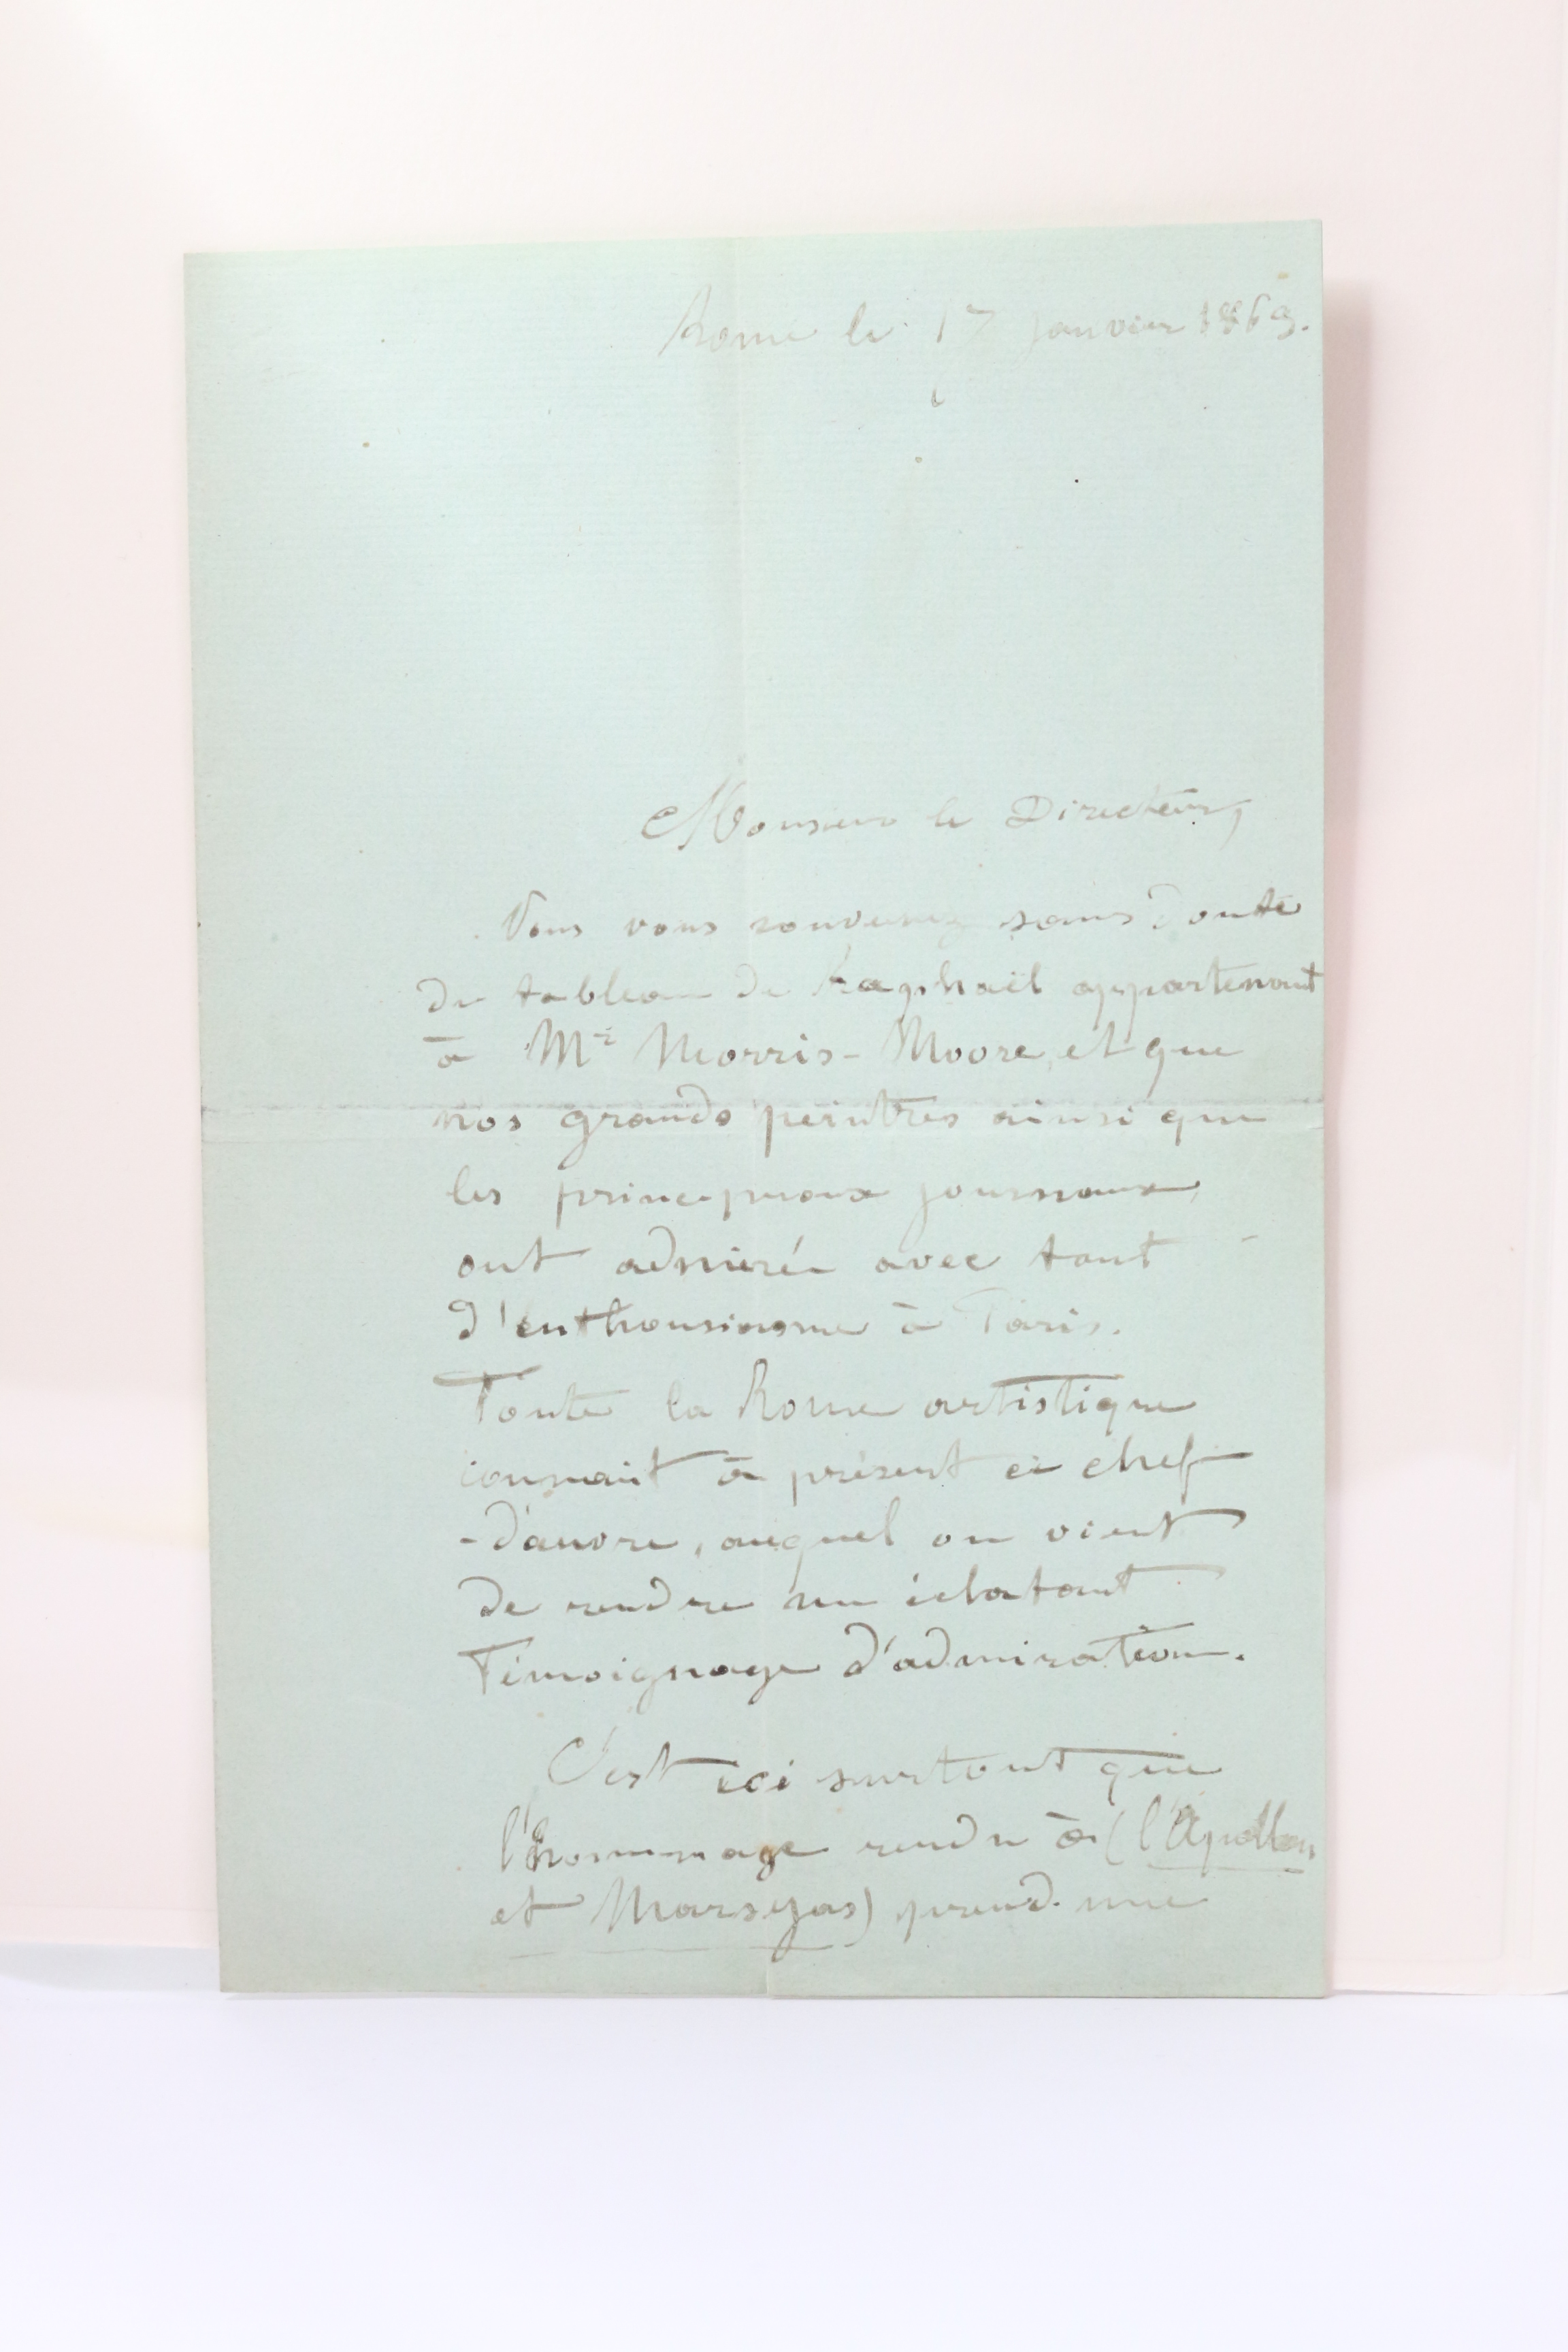 Rome le 17 janvier 1869.
Monsieur le Directeur,
Vous vous souvenez sans doute
du tableau de Raphaël appartenant
à Mr Morris-Moore, et que
nos grands peintres ainsi que
les principaux journaux,
ont admiré avec tant
d'enthousiasme à Paris.
Toute la Rome artistique
connait à présent ce chef
-d'œuvre, auquel on vient
de rendre un éclatant
témoignage d'admiration.
C'est ici surtout que
l'hommage rendu à (l'Apollon
et Marsyas) prend une